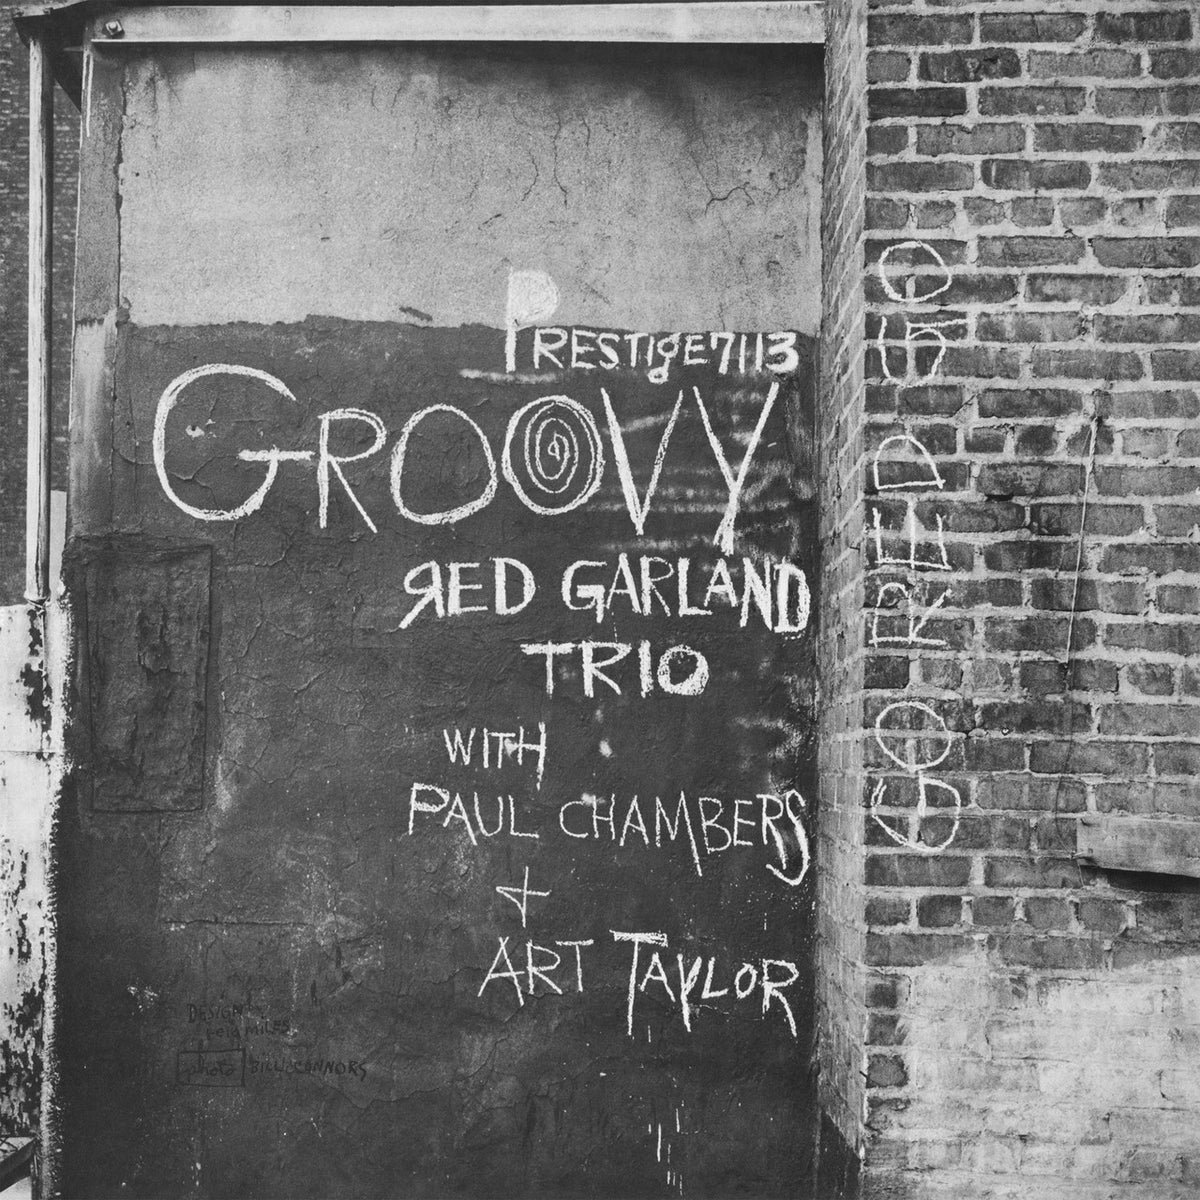 PRESTIGE 7113
GROOVY
RED GARLAND
TRIO
WITH
PAUL CHAMBERS
+
ART TAYLOR
DESIGN
REID MILES
photo BILL CONNORS
GO RED 50